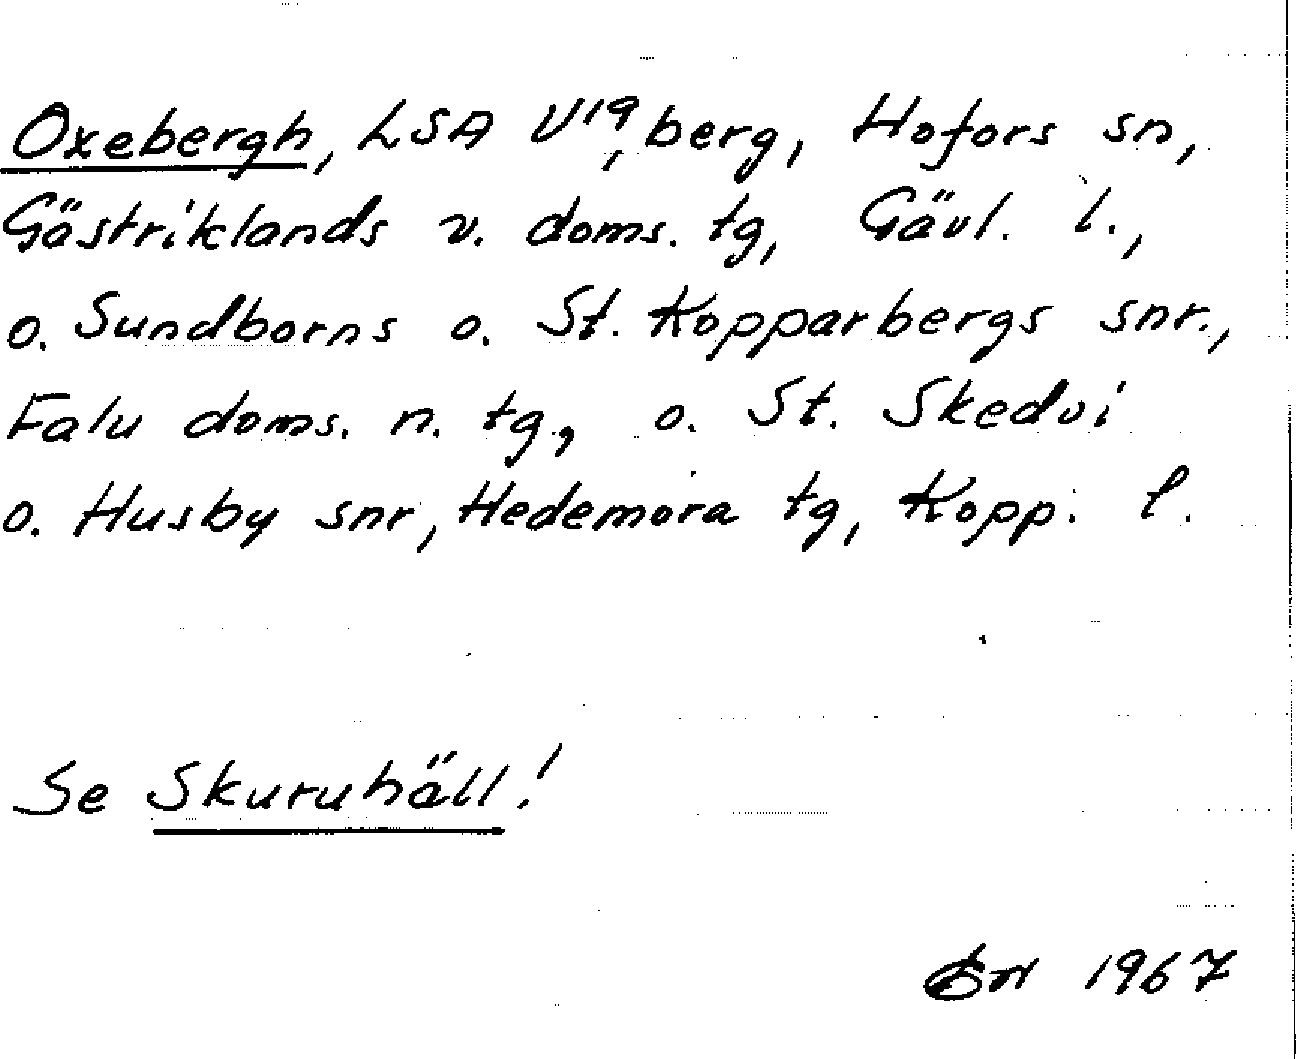 Oxebergh, LSA V19, berg, Hofors sn,
Gästriklands v. doms. tg, Gävl. l.,
o. Sundborns o. St. Kopparbergs snr.,
Falu doms. n. tg, o. St. Skedvi
o. Husby snr, Hedemora tg, Kopp. l.
Se Skuruhäll!
1967